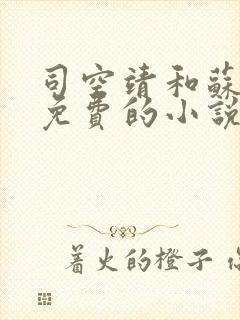 司空靖和蘇
免費的小說
着火的橙子